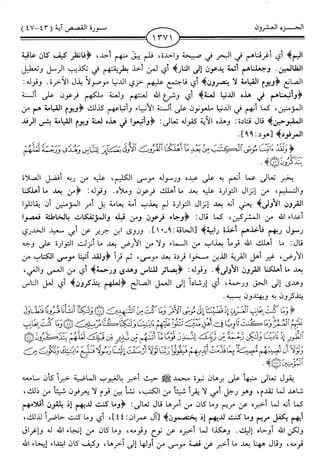 الجزء العشرون
سورة القصص آية (٤٣-٤٧)
١٣٧١
اليم﴾ أي أغرقناهم في البحر في صبيحة واحدة، فلم يبق منهم أحد، ﴿فانظر كيف كان عاقبة
الظالمين. وجعلناهم أئمة يدعون إلى النار﴾ أي لمن أخذ بطريقتهم في تكذيب الرسل وتعطيل
الصانع ﴿ويوم القيامة لا ينصرون﴾ أي فاجتمع عليهم خزي الدنيا موصولاً بذل الآخرة. وقوله:
﴿وأتبعناهم في هذه الدنيا لعنة﴾ أي وشرع الله لعنتهم ولعنة ملكهم فرعون على ألسنة
المؤمنين، كما أنهم في الدنيا ملعونون على ألسنة الأنبياء وأتباعهم كذلك ﴿ويوم القيامة هم من
المقبوحين﴾ قال قتادة: وهذه الآية كقوله تعالى: ﴿وأتبعوا في هذه لعنة ويوم القيامة بئس الرفد
المرفود﴾ [هود: ٩٩].
﴿وَلَقَدْ ءَاتَيْنَا مُوسَى ٱلْكِتَٰبَ مِنۢ بَعْدِ مَآ أَهْلَكْنَا ٱلْقُرُونَ ٱلْأُولَىٰ بَصَآئِرَ لِلنَّاسِ وَهُدًى وَرَحْمَةً لَّعَلَّهُمْ
يَتَذَكَّرُونَ ﴾
يخبر تعالى عما أنعم به على عبده ورسوله موسى الكليم، عليه من ربه أفضل الصلاة
والتسليم، من إنزال التوراة عليه بعد ما أهلك فرعون وملأه. وقوله: ﴿من بعد ما أهلكنا
القرون الأولى﴾ يعني أنه بعد إنزال التوراة لم يعذب أمة بعامة بل أمر المؤمنين أن يقاتلوا
أعداء الله من المشركين، كما قال: ﴿وجاء فرعون ومن قبله والمؤتفكات بالخاطئة فعصوا
رسول ربهم فأخذهم أخذة رابية﴾ [الحاقة: ٩-١٠]. وروى ابن جرير عن أبي سعيد الخدري
قال: ما أهلك الله قوماً بعذاب من السماء ولا من الأرض بعد ما أنزلت التوراة على وجه
الأرض، غير أهل القرية الذين مسخوا قردة بعد موسى، ثم قرأ ﴿ولقد آتينا موسى الكتاب من
بعد ما أهلكنا القرون الأولى﴾. وقوله: ﴿بصائر للناس وهدى ورحمة﴾ أي من العمى والغي،
وهدى إلى الحق ورحمة، أي إرشاداً إلى العمل الصالح ﴿لعلهم يتذكرون﴾ أي لعل الناس
يتذكرون به ويهتدون بسببه.
﴿وَمَا كُنتَ بِجَانِبِ ٱلْغَرْبِىِّ إِذْ قَضَيْنَآ إِلَىٰ مُوسَى ٱلْأَمْرَ وَمَا كُنتَ مِنَ ٱلشَّٰهِدِينَ وَلَٰكِنَّآ أَنشَأْنَا قُرُونًا فَتَطَاوَلَ
عَلَيْهِمُ ٱلْعُمُرُ وَمَا كُنتَ ثَاوِيًا فِىٓ أَهْلِ مَدْيَنَ تَتْلُوا۟ عَلَيْهِمْ ءَايَٰتِنَا وَلَٰكِنَّا كُنَّا مُرْسِلِينَ وَمَا كُنتَ بِجَانِبِ
ٱلطُّورِ إِذْ نَادَيْنَا وَلَٰكِن رَّحْمَةً مِّن رَّبِّكَ لِتُنذِرَ قَوْمًا مَّآ أَتَىٰهُم مِّن نَّذِيرٍ مِّن قَبْلِكَ لَعَلَّهُمْ يَتَذَكَّرُونَ
وَلَوْلَآ أَن تُصِيبَهُم مُّصِيبَةٌۢ بِمَا قَدَّمَتْ أَيْدِيهِمْ فَيَقُولُوا۟ رَبَّنَا لَوْلَآ أَرْسَلْتَ إِلَيْنَا رَسُولًا فَنَتَّبِعَ ءَايَٰتِكَ
وَنَكُونَ مِنَ ٱلْمُؤْمِنِينَ ﴾
يقول تعالى منبهاً على برهان نبوة محمد ﷺ حيث أخبر بالغيوب الماضية خبراً كأن سامعه
شاهد لما تقدم، وهو رجل أمي لا يقرأ شيئاً من الكتب، نشأ بين قوم لا يعرفون شيئاً من ذلك،
كما أنه لما أخبره عن مريم وما كان من أمرها قال تعالى: ﴿وما كنت لديهم إذ يلقون أقلامهم
أيهم يكفل مريم وما كنت لديهم إذ يختصمون﴾ [آل عمران: ٤٤]، أي وما كنت حاضراً لذلك،
ولكن الله أوحاه إليك. وهكذا لما أخبره عن نوح وقومه، وما كان من إنجاء الله له وإغراق
قومه، وقال ههنا بعد ما أخبر عن قصة موسى من أولها إلى آخرها، وكيف كان ابتداء إيحاء الله